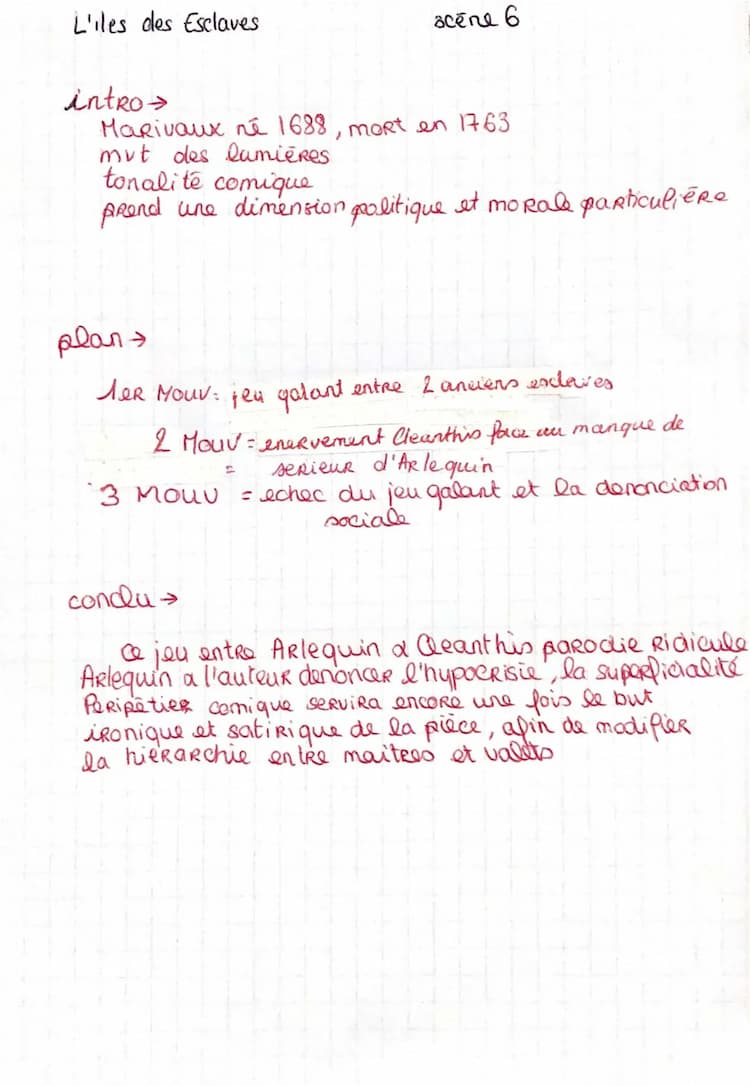 L'iles des Esclaves scène 6
intro →
Marivaux né 1688, mort en 1763
mvt des lumières
tonalité comique
prend une dimension politique et morale particulière
plan →
1ER MOUV: jeu galant entre 2 anciens esclaves
2 MOUV = enervement Cleanthis face au manque de
= serieur d'Arlequin
3 MOUV = echec du jeu galant et la denonciation
sociale
conclu →
Ce jeu entre Arlequin & Cleanthis parodie Ridicule
Arlequin a l'auteur denoncer l'hypocrisie, la superficialité
Peripetiee comique servira encore une fois le but
ironique et satirique de la pièce, afin de modifier
la hierarchie entre maitres et valets